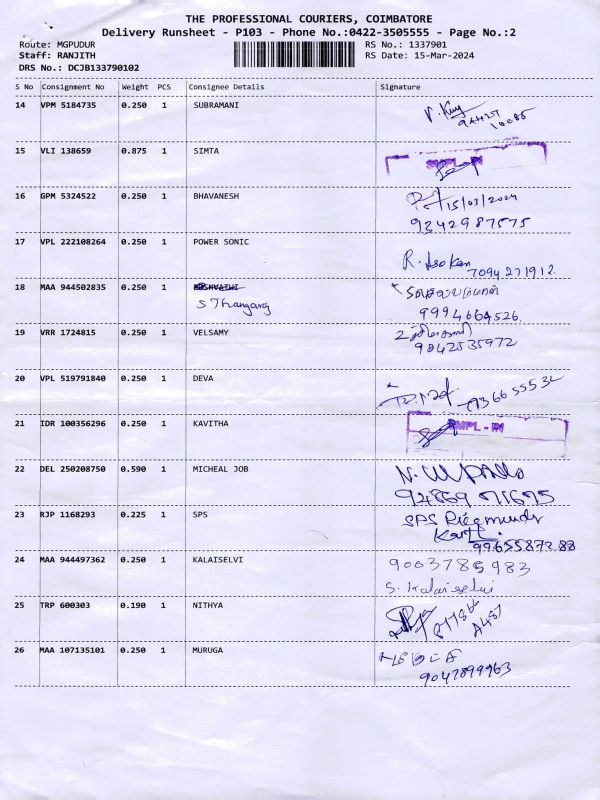 THE PROFESSIONAL COURIERS, COIMBATORE
Delivery Runsheet - P103 - Phone No.:0422-3505555 - Page No.:2
Route: MGPUDUR
RS No.: 1337901
Staff: RANJITH
RS Date: 15-Mar-2024
DRS No.: DCJB133790102
S No Consignment No Weight PCS Consignee Details Signature
14 VPM 5184735 0.250 1 SUBRAMANI
15 VLI 138659 0.875 1 SIMTA
16 GPM 5324522 0.250 1 BHAVANESH
15/03/2024
9342987575
17 VPL 222108264 0.250 1 POWER SONIC
R. Asokan
7094271912.
18 MAA 944502835 0.250 1
S Thangaraj
9994664526.
19 VRR 1724815 0.250 1 VELSAMY
9842535972
20 VPL 519791840 0.250 1 DEVA
21 IDR 100356296 0.250 1 KAVITHA
MPL - IN
22 DEL 250208750 0.590 1 MICHEAL JOB
23 RJP 1168293 0.225 1 SPS
SPS
9965587288
24 MAA 944497362 0.250 1 KALAISELVI
9003785983
S. Kalaiselvi
25 TRP 600303 0.190 1 NITHYA
26 MAA 107135101 0.250 1 MURUGA
9047899963